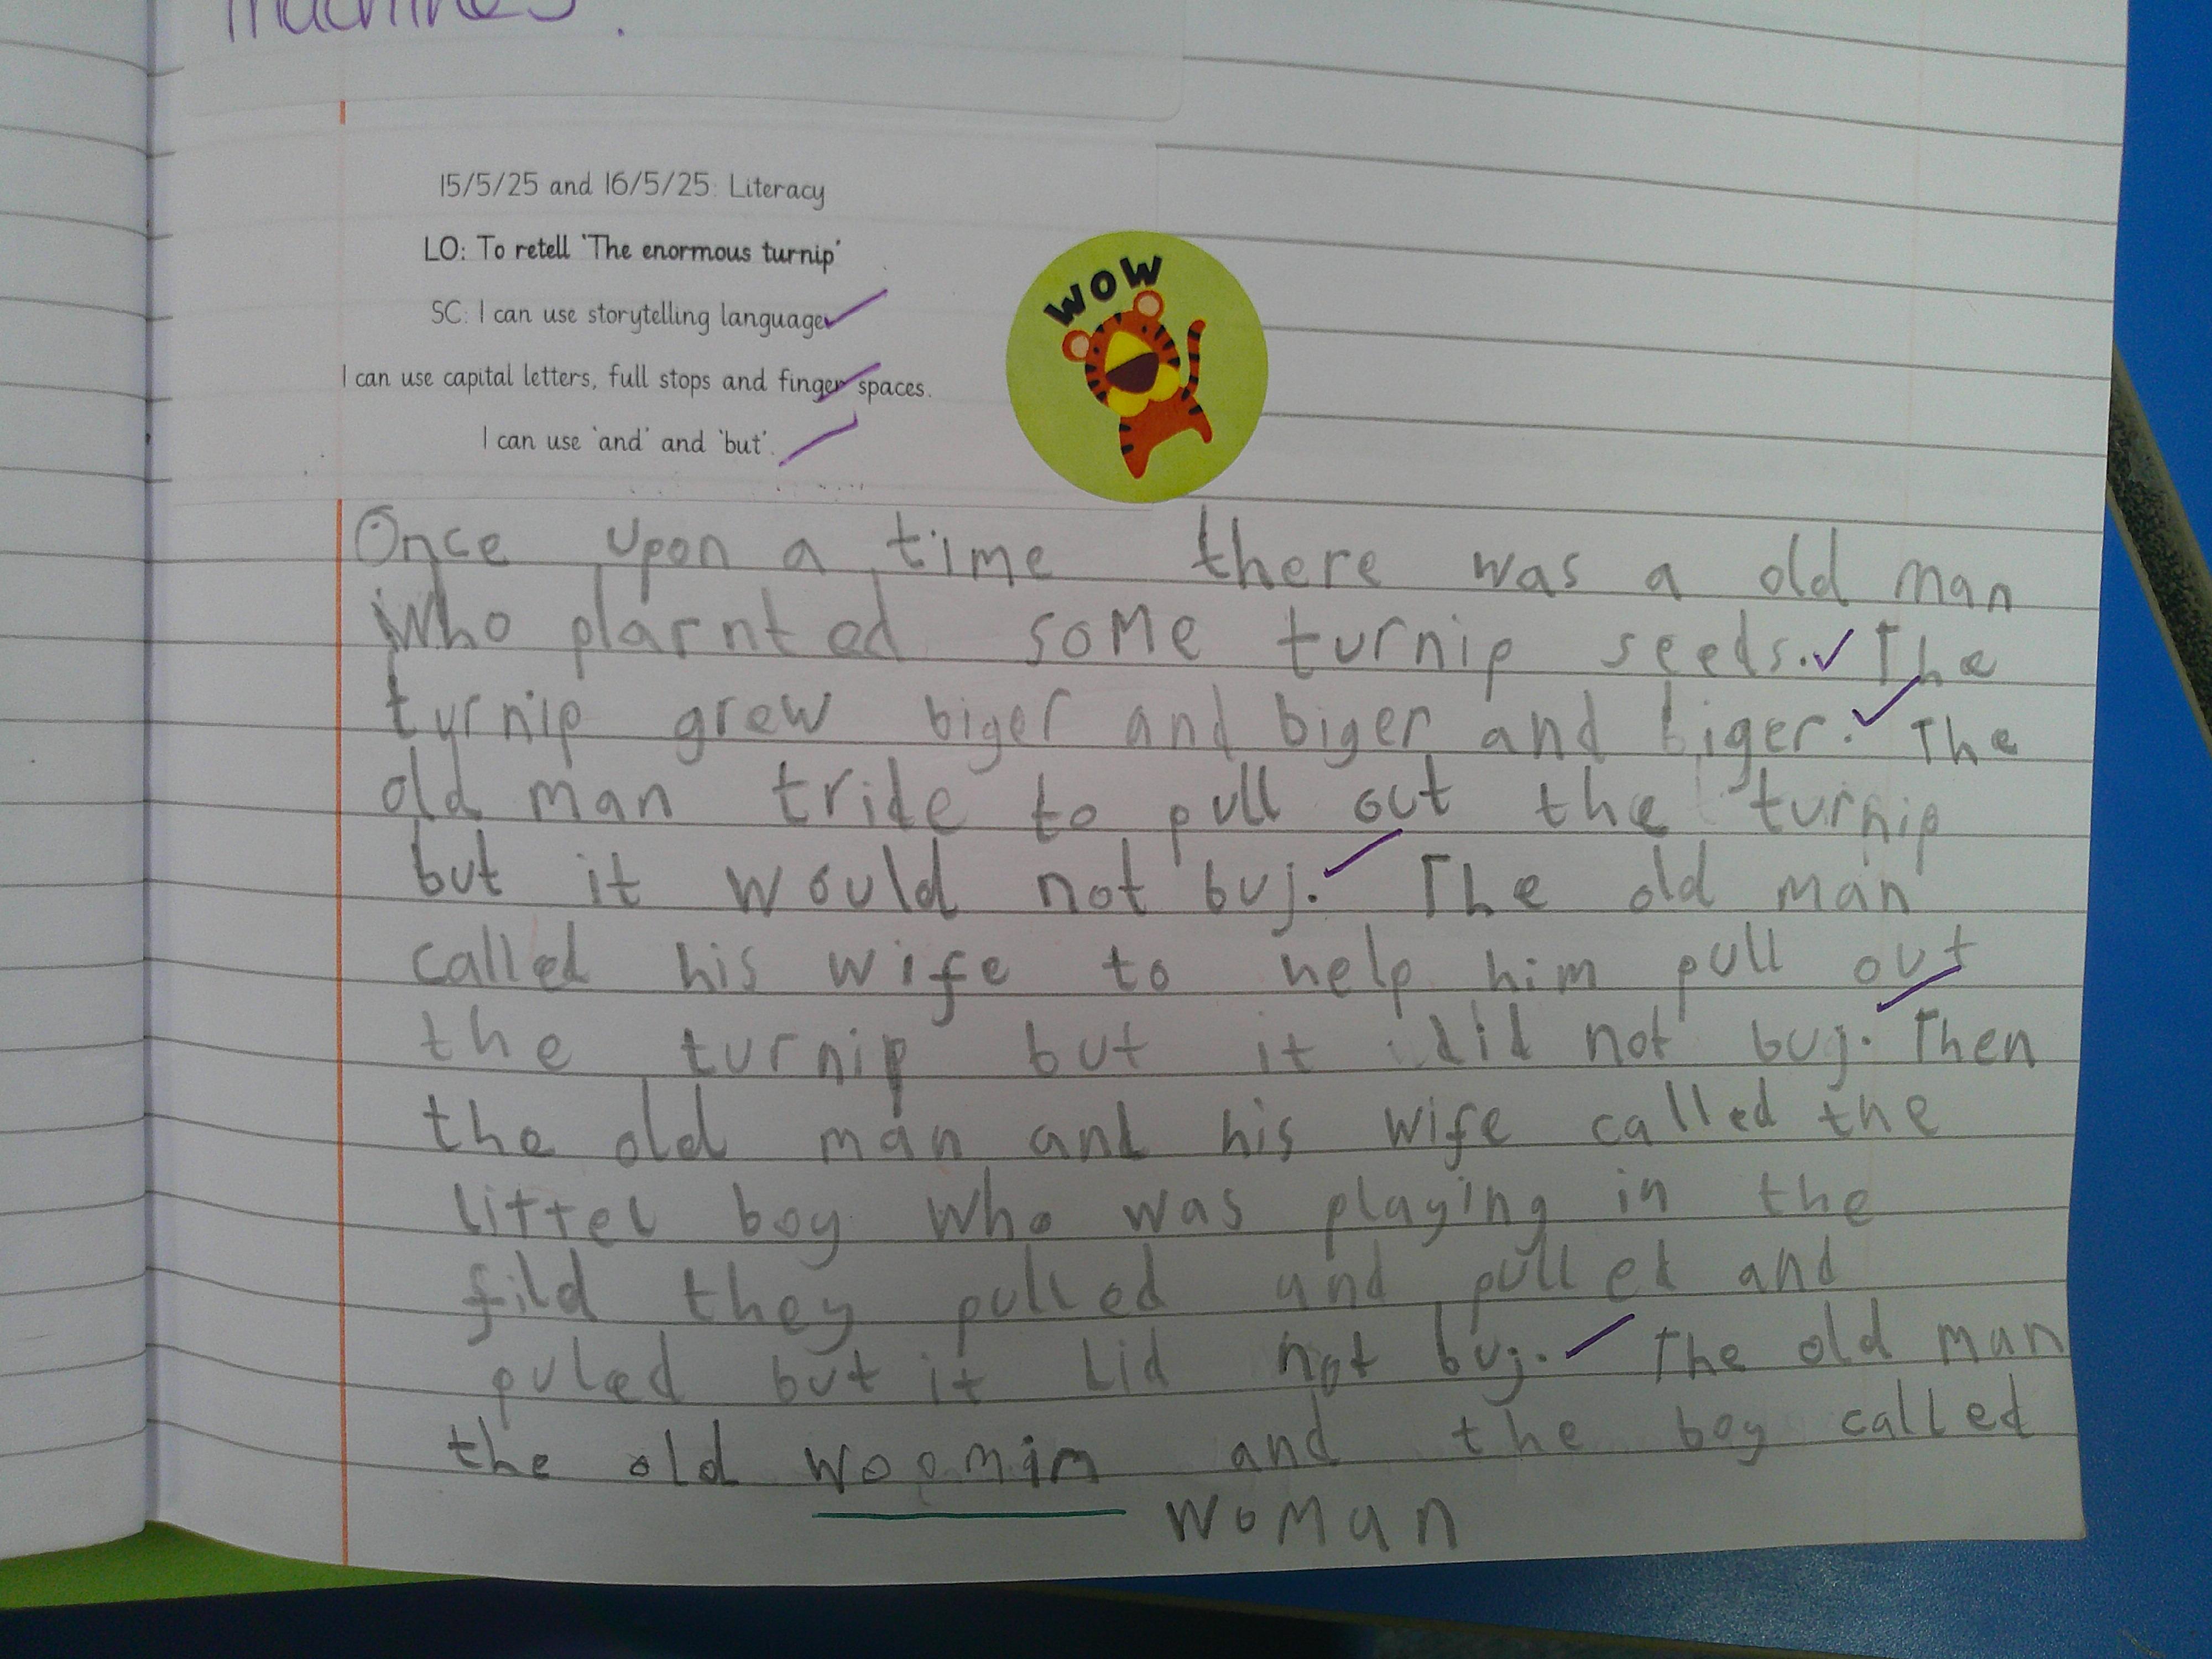 machines.
15/5/25 and 16/5/25: Literacy
LO: To retell 'The enormous turnip'
SC: I can use storytelling language
I can use capital letters, full stops and finger spaces.
I can use 'and' and 'but'.
WOW
Once upon a time there was a old man
who plarnted some turnip seeds. The
turnip grew biger and biger and biger. The
old man tride to pull out the turnip
but it would not buj. The old man
called his wife to help him pull out
the turnip but it did not buj. Then
the old man and his wife called the
littel boy who was playing in the
fild they pulled and pulled and
puled but it did not buj. The old man
the old woomin and the boy called
woman